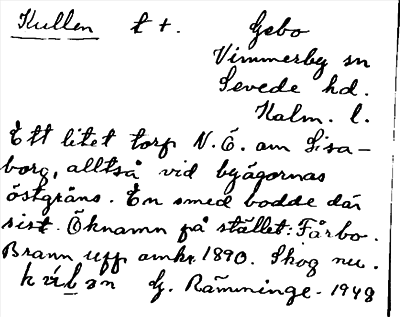 Kullen t +. Gebo
Vimmerby sn
Sevede hd.
Kalm. l.
Ett litet torp N. Ö. om Lisa-
borg, alltså vid byägornas
östgräns. En smed bodde där
sist. Öknamn på stället: Fårbo.
Brann upp omkr. 1890. Skog nu.
G. Rämminge - 1948